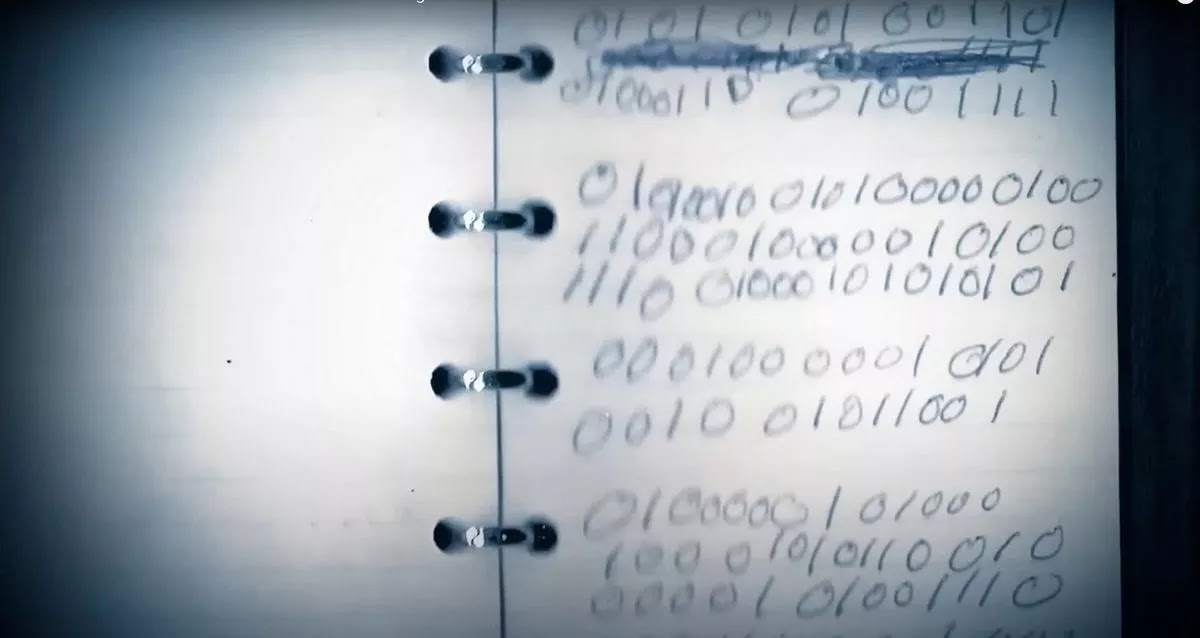 0101 0101 001101
01000110 01001111
01000010 010100000100
1100010000010100
1110 01000101010101
000100 0001 0101
0010 01011001
01000001 01000
100 01010110 010
00001 01001110